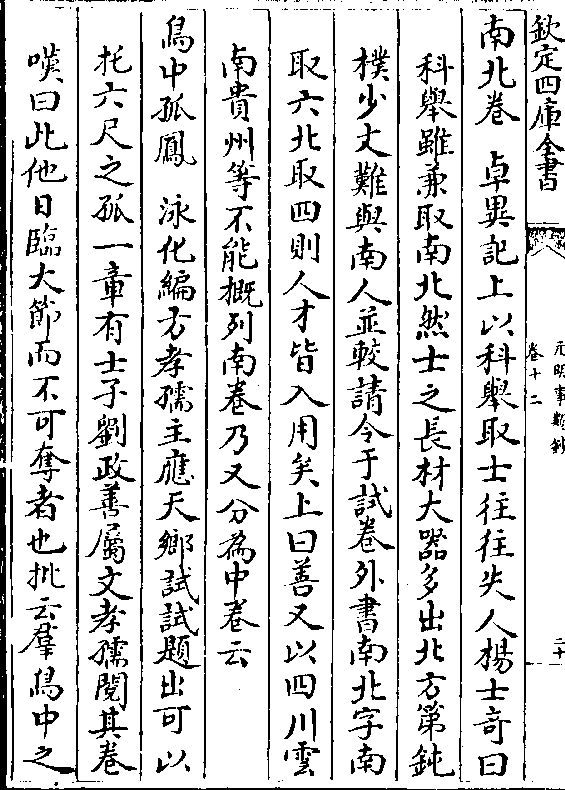 欽定四庫全書
元明事類鈔
卷十二
二十
南北卷　卓異記上以科舉取士往往失人楊士竒曰
科舉雖兼取南北然士之長材大器多出北方第鈍
樸少文難與南人並較請令于試卷外書南北字南
取六北取四則人才皆入用矣上曰善又以四川雲
南貴州等不能概列南卷乃又分為中卷云
鳥中孤鳳　泳化編方孝孺主應天鄉試試題出可以
托六尺之孤一章有士子劉政善屬文孝孺閱其卷
嘆曰此他日臨大節而不可奪者也批云羣鳥中之